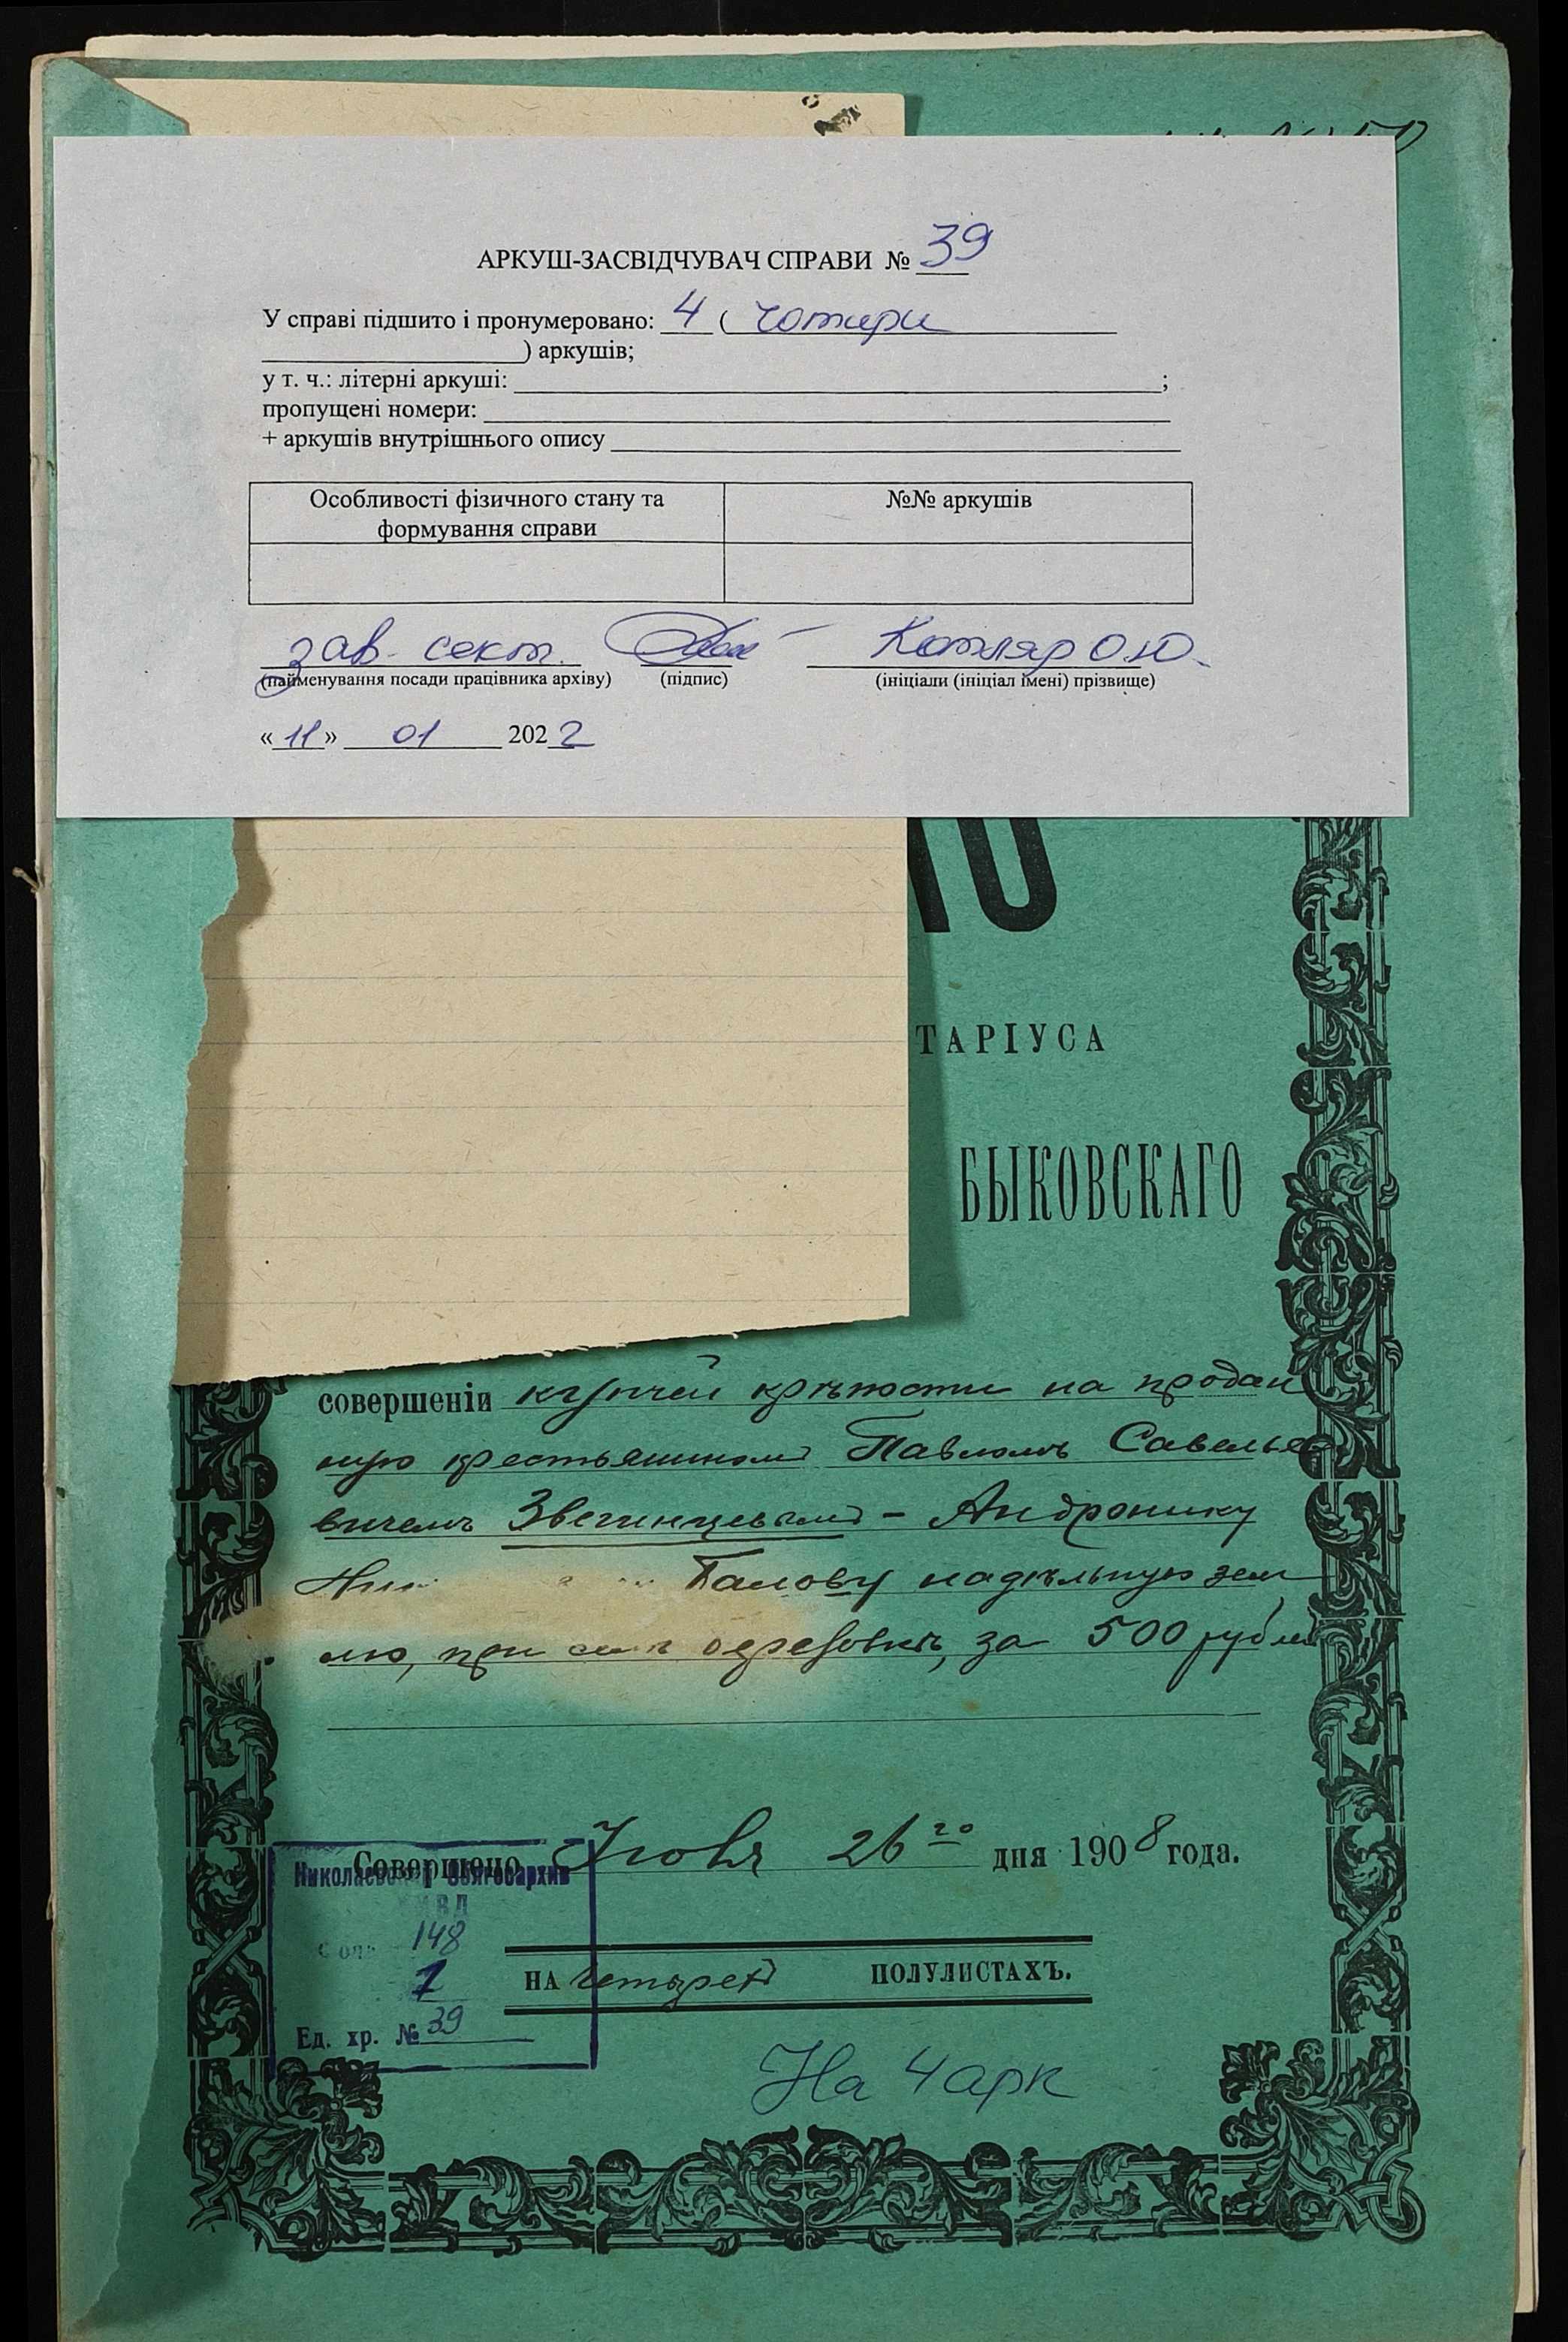 АРКУШ-ЗАСВІДЧУВАЧ СПРАВИ № 39
У справі підшито і пронумеровано: 4 ( чотири
) аркушів;
у т. ч.: літерні аркуші: ;
пропущені номери:
+ аркушів внутрішнього опису
Особливості фізичного стану та формування справи
№№ аркушів
зав. сект. Котляр О.Ю.
(найменування посади працівника архіву) (підпис) (ініціали (ініціал імені) прізвище)
«11» 01 2022
ТАРІУСА
БЫКОВСКАГО
совершеніи купчей крѣпости на продан
ную крестьяниномъ Павломъ Савелье
вичемъ Звегинцевымъ - Андронику
Палову надѣльную зем
лю, при за 500 рублей
Совершено Іюня 26 го дня 1908 года.
Николаевский Облгосархив
УМВД
Фонд 148
1
Ед. хр. № 39
НА четырехъ ПОЛУЛИСТАХЪ.
На 4 арк